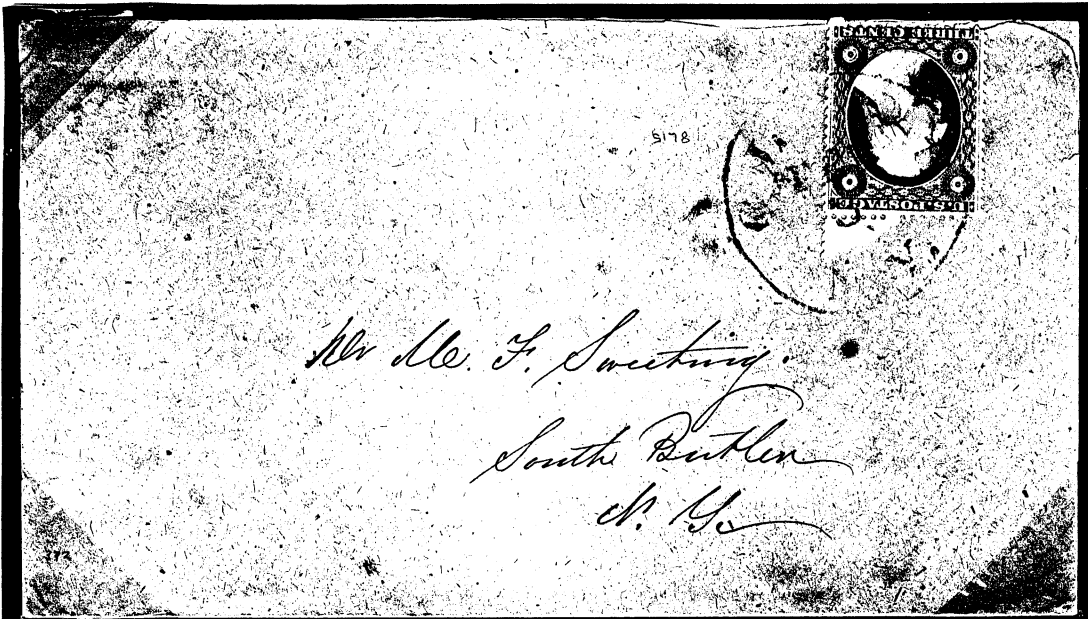 THREE CENTS
U.S. POSTAGE
5178
Mr M. F. Sweeting.
South Butler
N. Y.
372